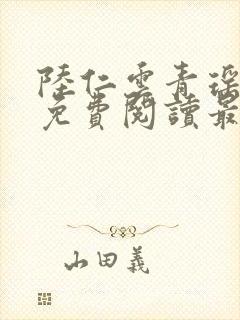 陸仁雲青瑤
免費閱讀最
山田義